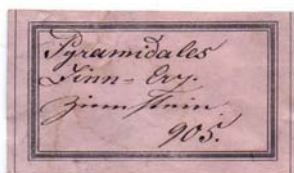 Pyramidales
Zinn-Erz.
Zinnstein.
905.